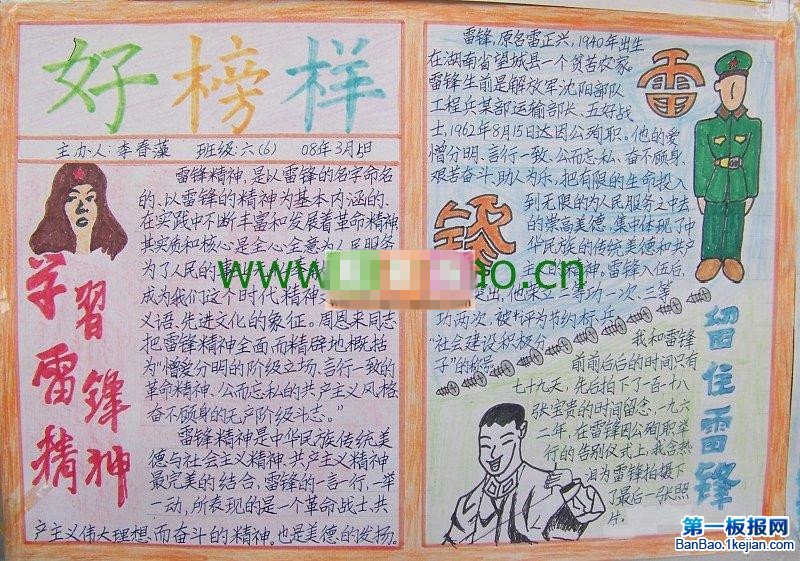 好榜样
主办人:李春藻 班级:六(6) 08年3月5日
雷锋精神,是以雷锋的名字命名
的、以雷锋的精神为基本内涵的、
在实践中不断丰富和发展着革命精神
其实质和核心是全心全意为人民服务
为了人民的事
成为我们这个时代精神
义语、先进文化的象征。周恩来同志
把雷锋精神全面而精辟地概括
为“憎爱分明的阶级立场、言行一致的
革命精神、公而忘私的共产主义风格、
奋不顾身的无产阶级斗志。”
雷锋精神是中华民族传统美
德与社会主义精神、共产主义精神
最完美的结合,雷锋的一言一行,一举
一动,所表现的是一个革命战士,共
产主义伟大理想,而奋斗的精神。也是美德的发扬。
学習
雷锋
精神
雷锋,原名雷正兴,1940年出生
在湖南省望城县一个贫苦农家。
雷锋生前是解放军沈阳部队
工程兵某部运输部长、五好战
士,1962年8月15日达因公殉职。他的爱
憎分明、言行一致、公而忘私、奋不顾身、
艰苦奋斗、助人为乐,把有限的生命投入
到无限的为人民服务之中去
的崇高美德,集中体现了中
华民族的传统美德和共产
主义的精神,雷锋入伍后,
出,他荣立二等功一次、三等
功两次,被评为节约标兵、
“社会建设积极分
子”的称号
雷
锋
我和雷锋
前前后后的时间只有
七十九天,先后拍下了一百一十八
张宝贵的时间留念,一九六
二年,在雷锋因公殉职举
行的告别仪式上,我含热
泪为雷锋拍摄下
了最后一张照
片。
留住雷锋
www.
ao.cn
第一板报网
BanBao.1kejian.com